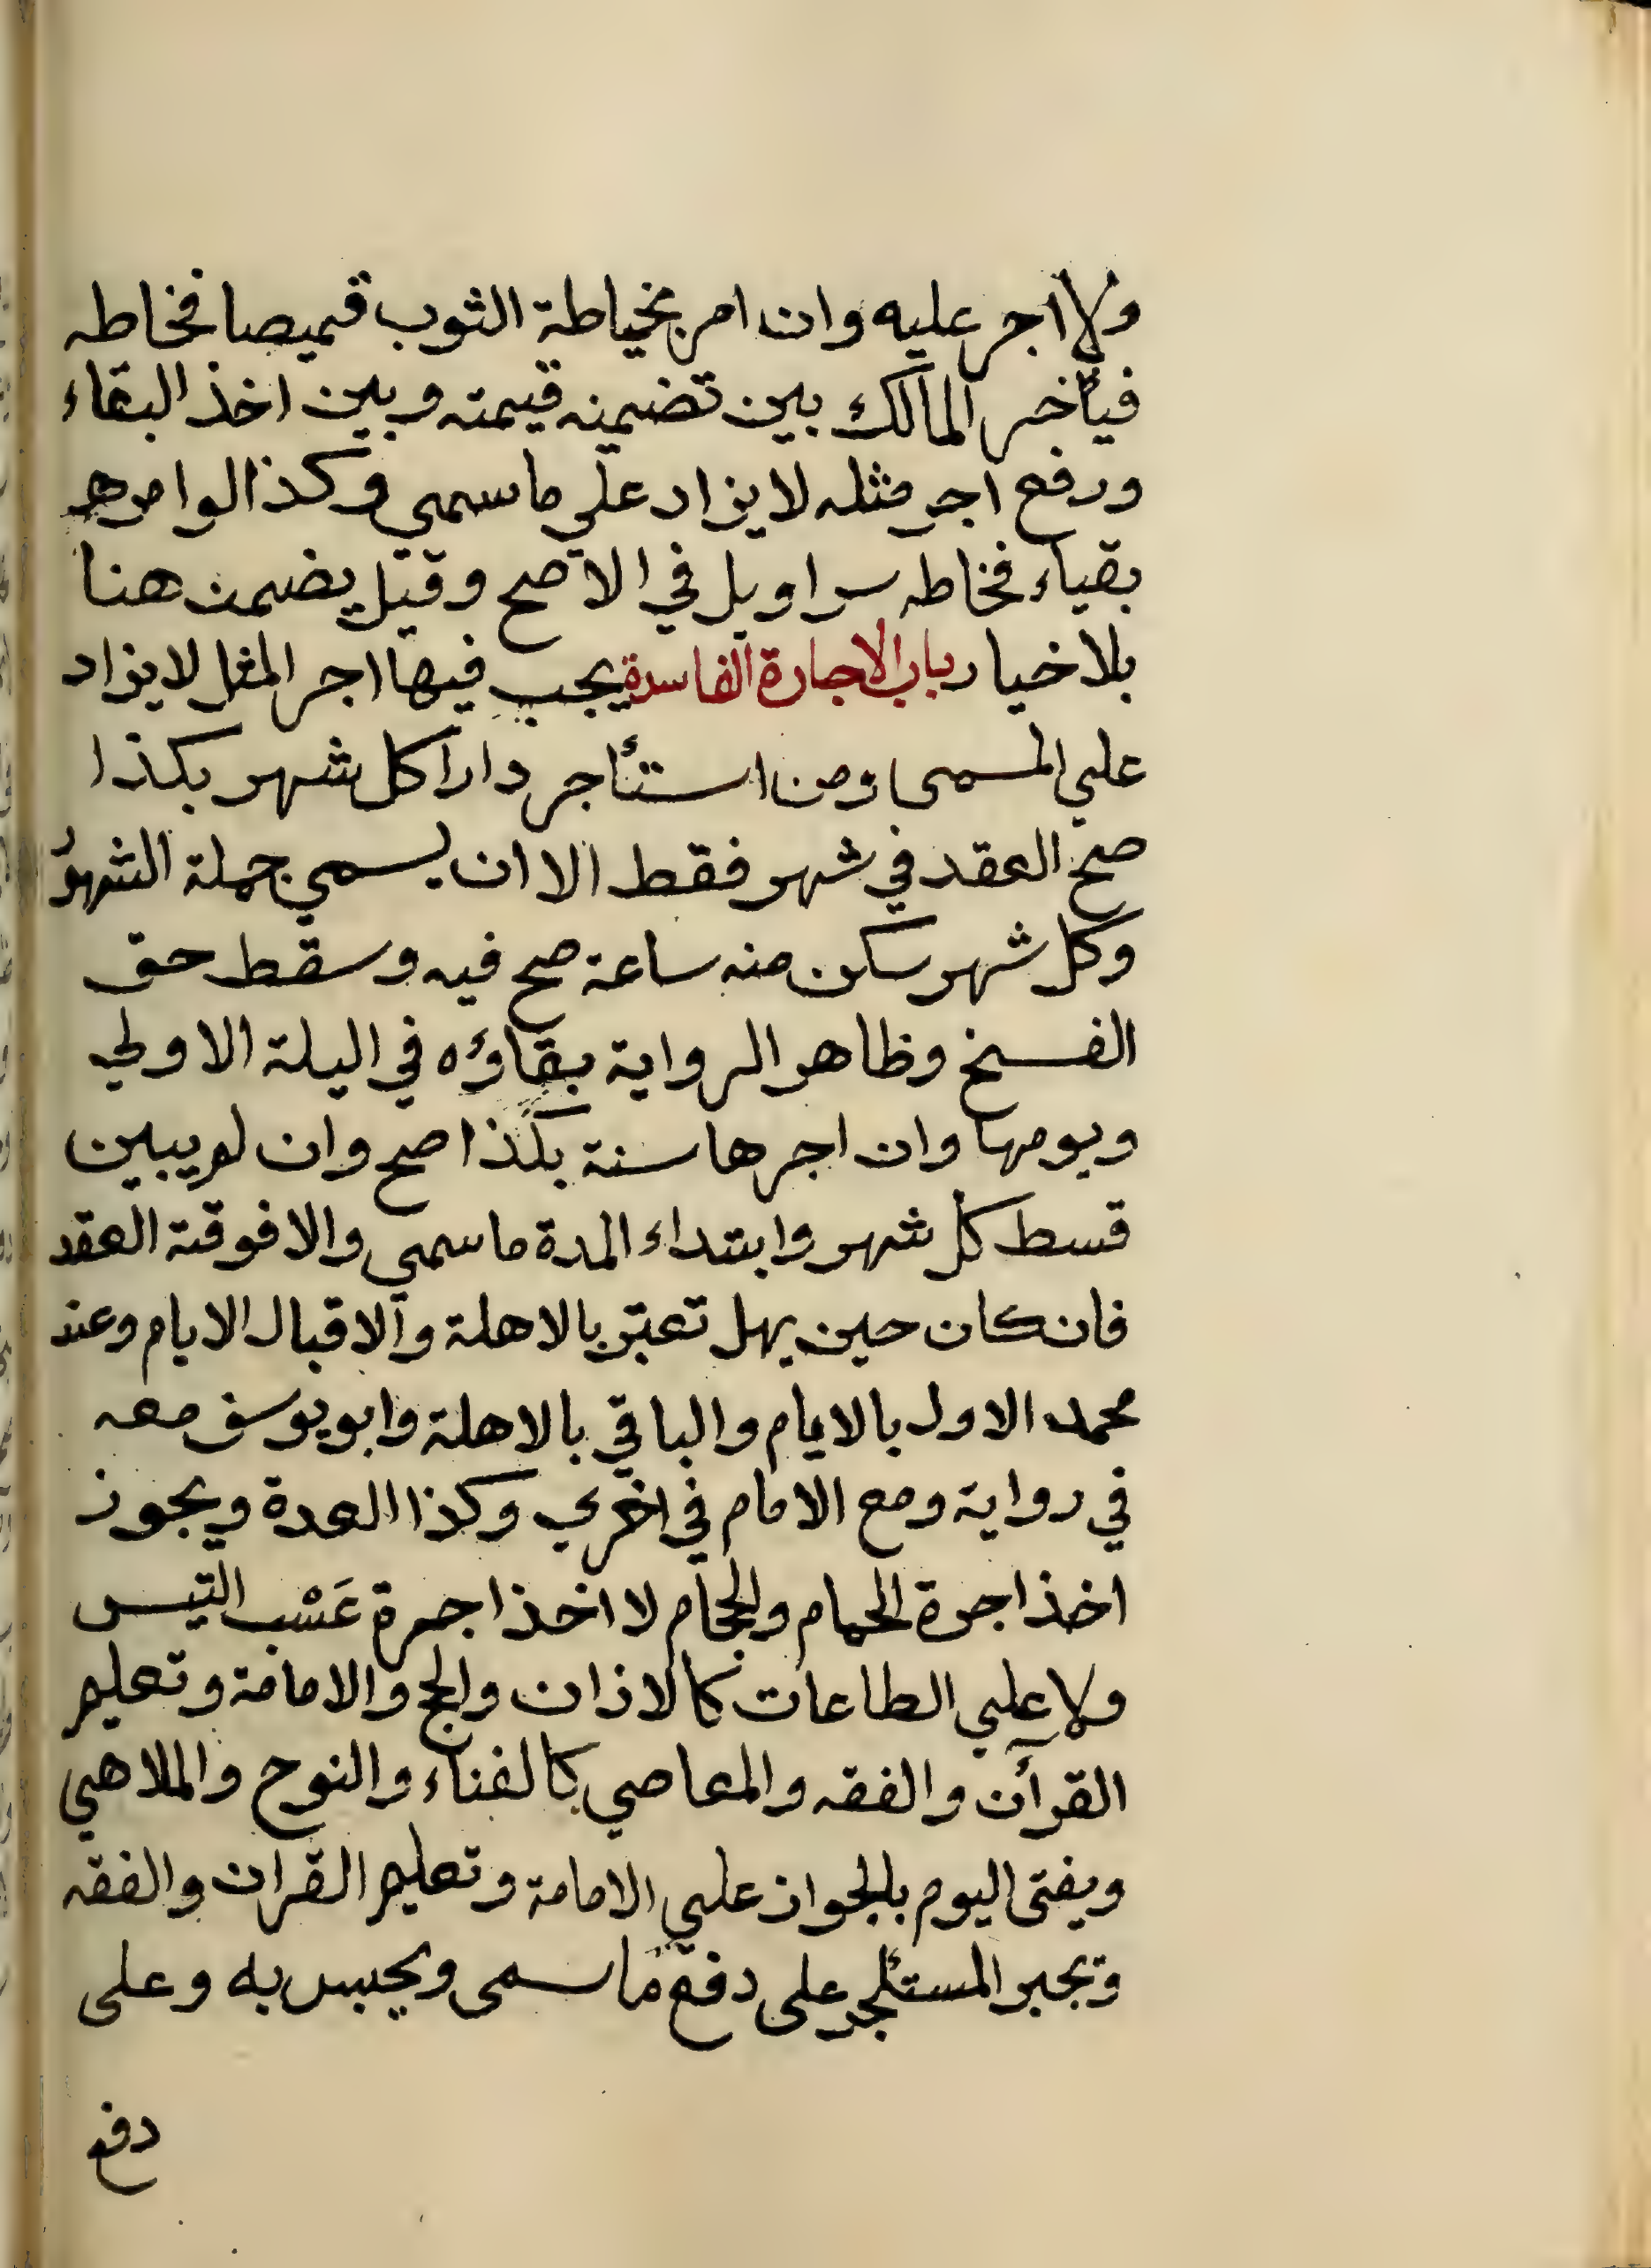 ولا اجر عليه وان امر بخياطة الثوب قميصا فخاطه
فيأخر المالك بين تضمينه قيمته وبين اخذ البقاء
ورفع اجر مثله لا يزاد علي ما سمي وكذا لو امره
بقياء فخاطه سراويل في الاصح وقيل يضمن هنا
بلا خيار باب الاجارة الفاسدة يجب فيها اجر المثل لا يزاد
علي المسمى ومن استأجر دارا كل شهر بكذا
صح العقد في شهر فقط الا ان يسمي جملة الشهوُ
وكل شهر سكن منه ساعة صح فيه وسقط حق
الفسخ وظاهر الرواية بقاؤه في اليلة الاولي
ويومها وان اجرها سنة بكذا صح وان لم يبين
قسط كل شهر وابتداء المدة ما سمي والا فوقته العقد
فان كان حين يهل تعتبر بالاهلة والا قبال الايام وعند
محمد الاول بالايام والباقي بالاهلة وابو يوسف معه
في رواية ومع الامام في اخري وكذا العدة ويجوز
اخذ اجرة الحمام والحجام لا اخذ اجرة عَسْب التيس
ولا علي الطاعات كالاذان والحج والامامة وتعليم
القرآن والفقه والمعاصي كالغناء والنوح والملاهي
ويفتى اليوم بالجواز علي الامامة وتعليم القران والفقه
ويجبر المستأجر على دفع ما سمى ويحبس به وعلى
دفع